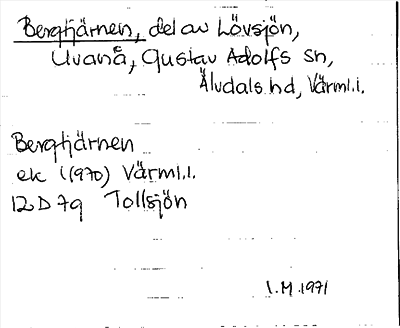 Bergtjärnen, del av Lövsjön,
Uvanå, Gustav Adolfs sn,
Älvdals hd, Värml.l.
Bergtjärnen
ek (1970) Värml.l.
12D7g Tollsjön
I.M.1971